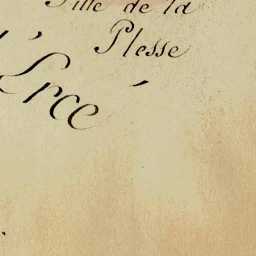 Ville de la
Plesse
Ercé